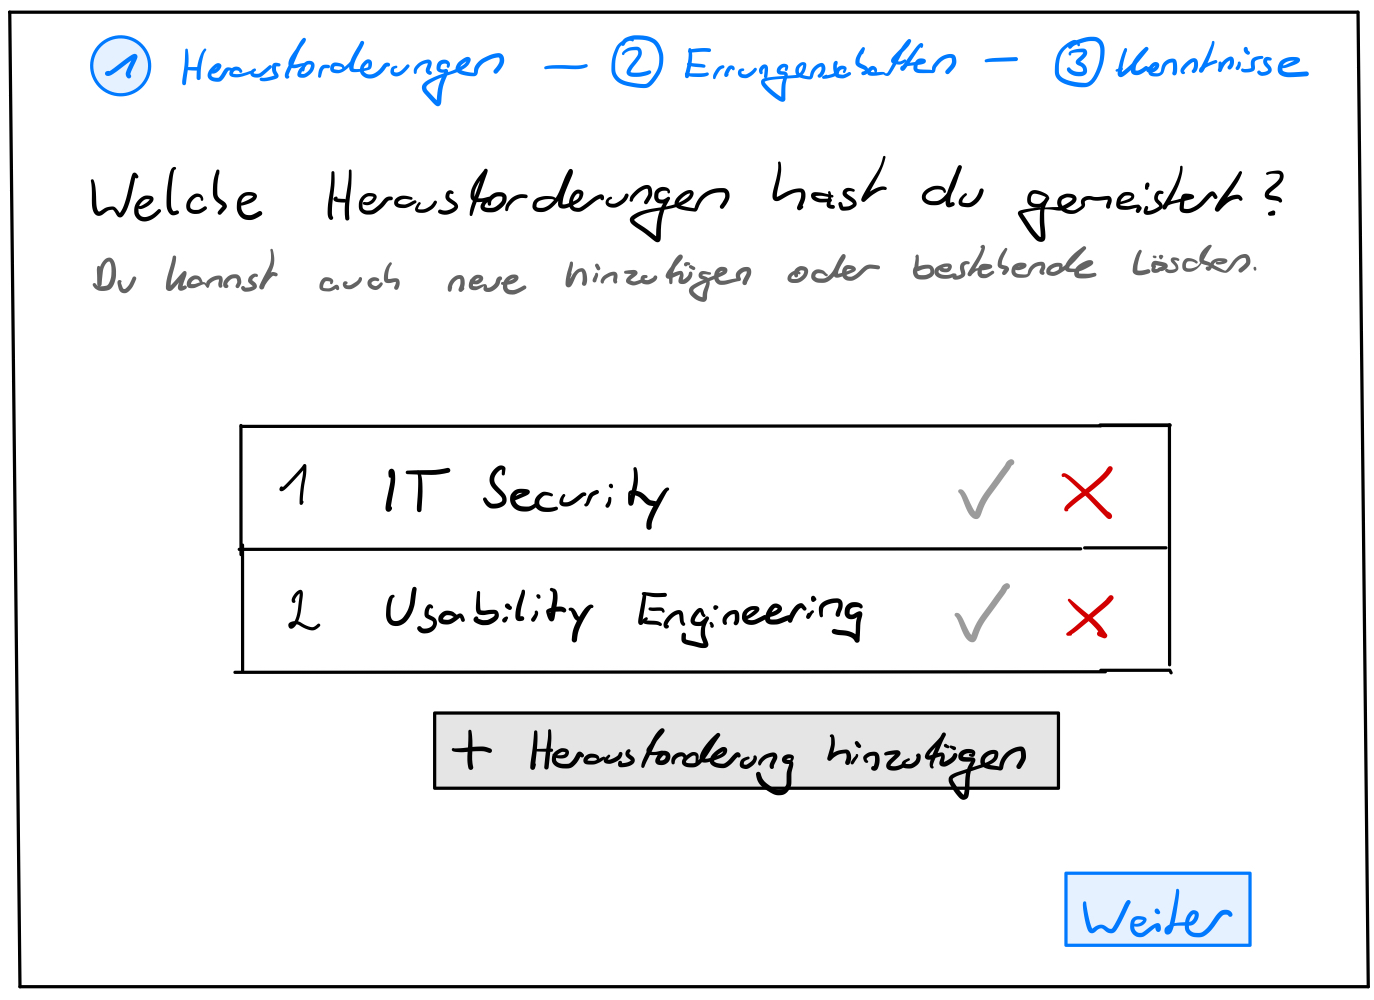 1 Herausforderungen — 2 Errungenschaften — 3 Kenntnisse
Welche Herausforderungen hast du gemeistert?
Du kannst auch neue hinzufügen oder bestehende Löschen.
1 IT Security ✓ ×
2 Usability Engineering ✓ ×
+ Herausforderung hinzufügen
Weiter